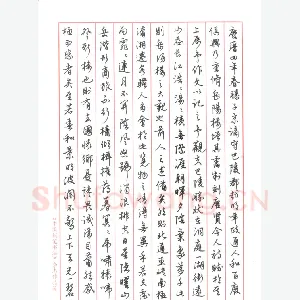 慶曆四年春滕子京謫守巴陵郡越明年政通人和百廢
俱興乃重修岳陽樓增其舊制刻唐賢今人詩賦於其
上屬予作文以記之予觀夫巴陵勝狀在洞庭一湖銜遠
山吞長江浩浩湯湯橫無際涯朝暉夕陰氣象萬千此
則岳陽樓之大觀也前人之述備矣然則北通巫峽南極
瀟湘遷客騷人多會於此覽物之情得無異乎若夫霪
雨霏霏連月不開陰風怒號濁浪排空日星隱曜山
岳潛形商旅不行檣傾楫摧薄暮冥冥虎嘯猿啼
登斯樓也則有去國懷鄉憂讒畏譏滿目蕭然感
極而悲者矣至若春和景明波瀾不驚上下天光一碧